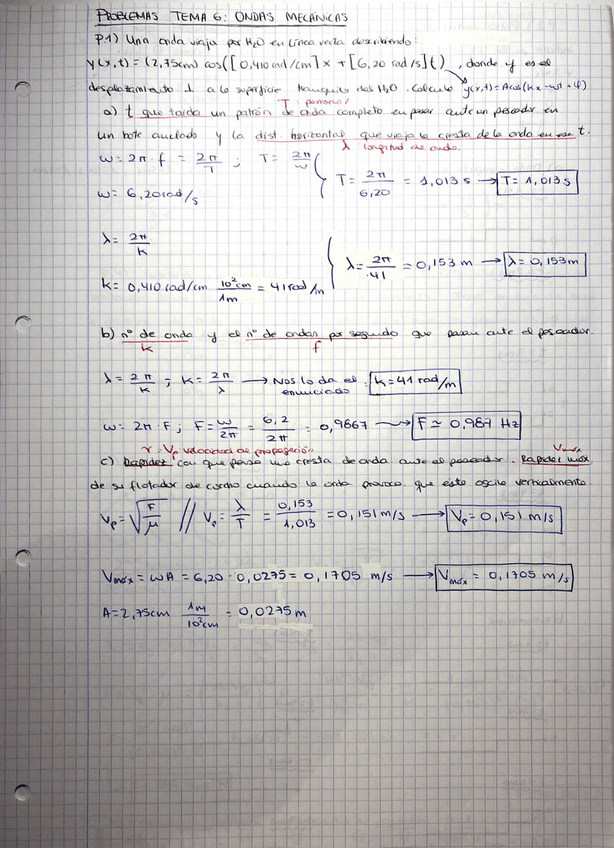 PROBLEMAS TEMA 6: ONDAS MECÁNICAS
P.1) Una onda viaja por H2O en línea recta describiendo:
y(x,t) = (2,75cm) cos([0,410 rad/cm]x + [6,20 rad/s]t), donde y es el
desplazamiento ⊥ a la superficie tranquila del H2O. Calcula y(x,t)=Acos(kx-wt+φ)
T: periodo
a) t que tarda un patrón de onda completo en pasar ante un pescador en
un bote anclado y la dist. horizontal que viaja la cresta de la onda en ese t.
λ longitud de onda.
ω = 2π·f = 2π/T ; T = 2π/ω
T = 2π/6,20 = 1,013 s → T = 1,013 s
ω = 6,20 rad/s
λ = 2π/k
λ = 2π/41 = 0,153 m → λ = 0,153 m
k = 0,410 rad/cm 10²cm/1m = 41 rad/m
b) nº de onda y el nº de ondas por segundo que pasan ante el pescador.
k f
λ = 2π/k ; k = 2π/λ → Nos lo da el enunciado: k = 41 rad/m
ω = 2π·F ; F = ω/2π = 6,2/2π = 0,9867 → F ≃ 0,987 Hz
Vp velocidad de propagación
Vmáx
c) Rapidez con que pasa una cresta de onda ante el pescador. Rapidez máx
de su flotador de corcho cuando la onda provoca que éste oscile verticalmente.
Vp = √F/μ // Vp = λ/T = 0,153/1,013 = 0,151 m/s → Vp = 0,151 m/s
Vmáx = ωA = 6,20 · 0,0275 = 0,1705 m/s → Vmáx = 0,1705 m/s
A = 2,75cm 1m/10²cm = 0,0275 m